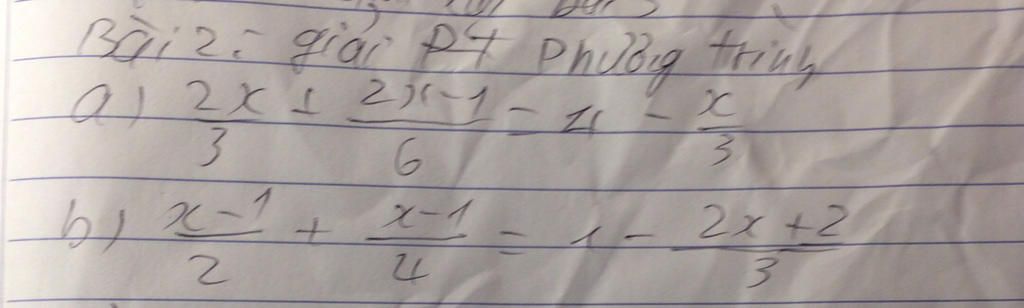 Bài 2: giải PT Phường trình
a) 2x/3 + 2x-1/6 = 4 - x/3
b) x-1/2 + x-1/4 = 1 - 2x+2/3